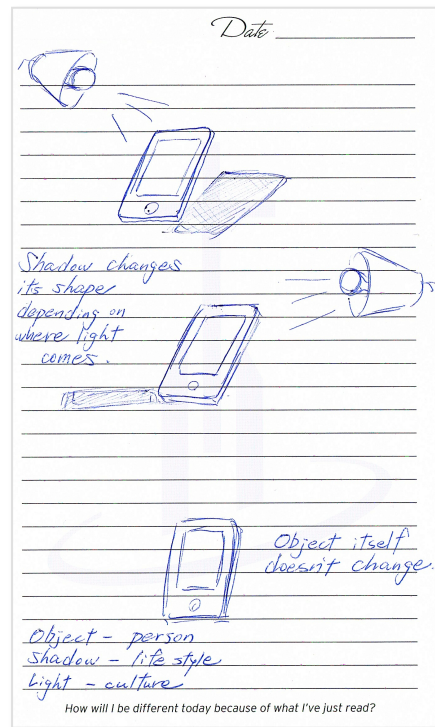 Date
Shadow changes
its shape
depending on
where light
comes.
Object itself
doesn't change.
Object - person
Shadow - life style
Light - culture
How will I be different today because of what I've just read?